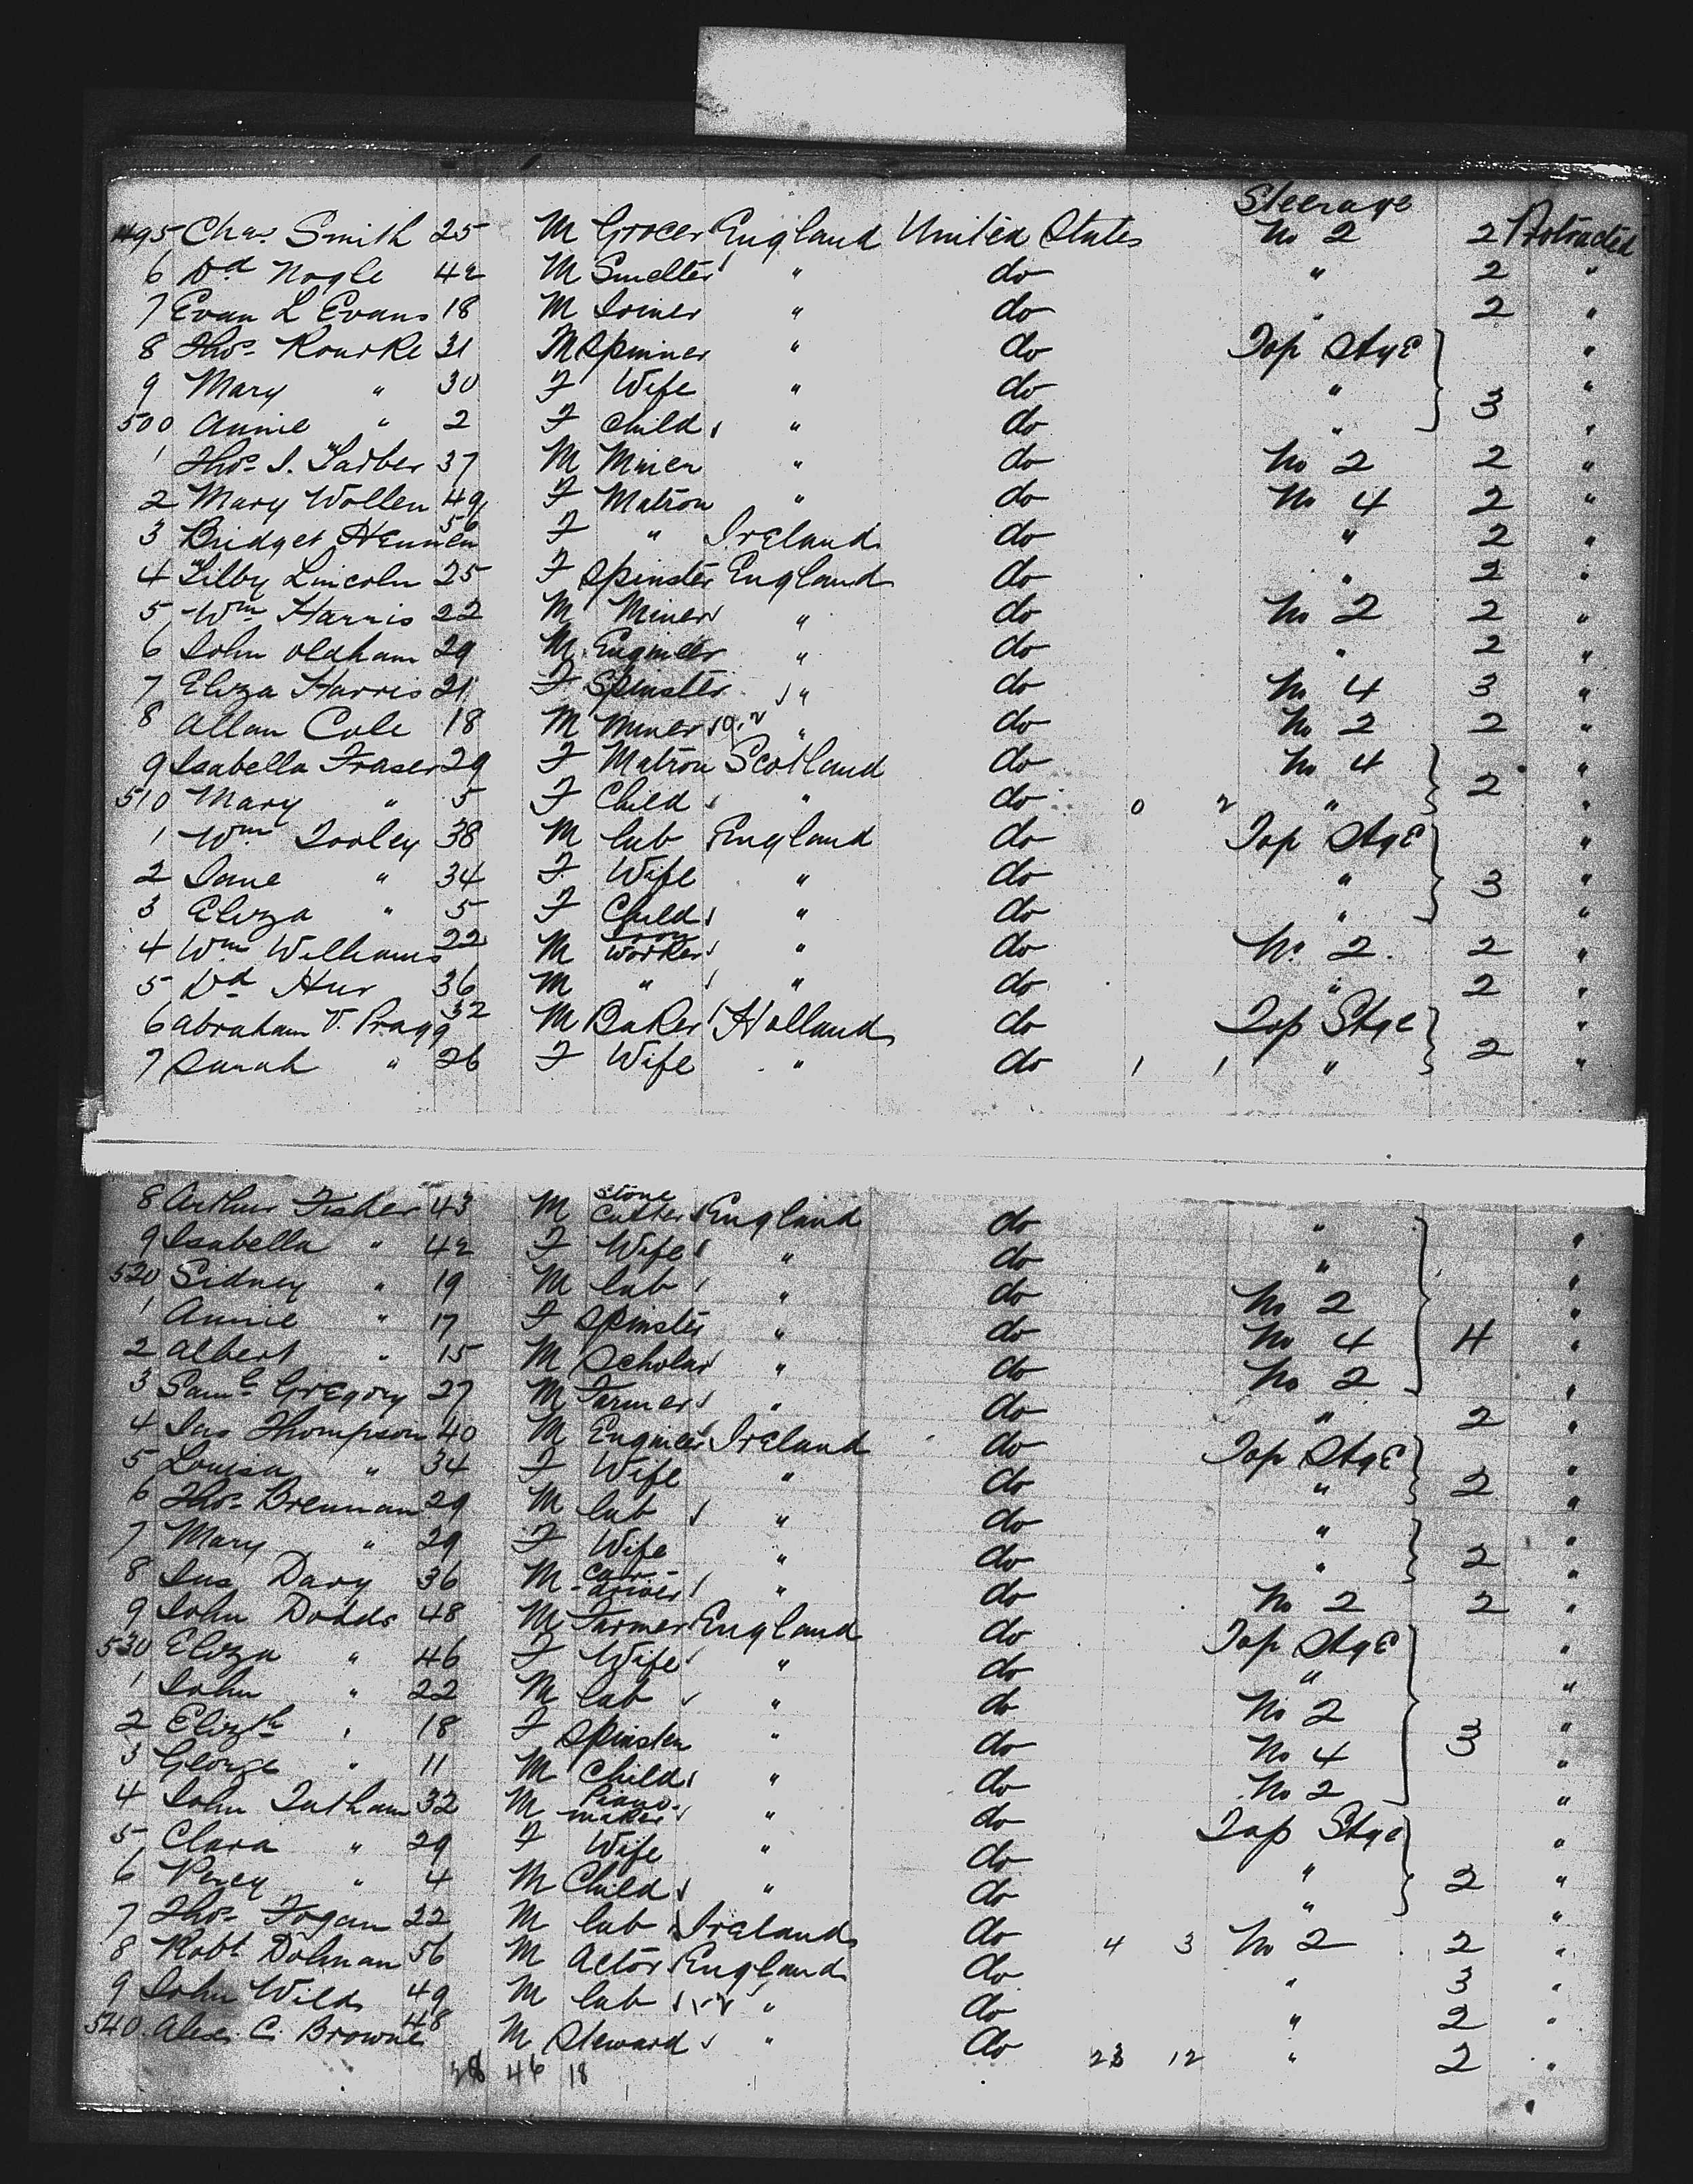 Steerage
495 Chas. Smith 25 M Grocer England United States No 2 2 Protracted
6 Dd Nogle 42 M Smelter " do " 2 "
7 Evan L Evans 18 M Joiner " do " 2 "
8 Thos. Rourke 31 M Spinner " do Top Stge "
9 Mary " 30 F Wife " do " 3 "
500 Annie " 2 F Child " do " "
1 Thos. J. Tarber 37 M Miner " do No 2 2 "
2 Mary Wollen 49 F Matron " do No 4 2 "
3 Bridget Hennen 50 F " Ireland do " 2 "
4 Tilby Lincoln 25 F Spinster England do " 2 "
5 Wm Harris 22 M Miner " do No 2 2 "
6 John Oldham 29 M Engineer " do " 2 "
7 Eliza Harris 21 F Spinster " do No 4 3 "
8 Allan Cole 18 M Miner " do No 2 2 "
9 Isabella Fraser 29 F Matron Scotland do No 4 2 "
510 Mary " 5 F Child " do 0 2 " "
1 Wm Tooley 38 M lab England do Top Stge "
2 Jane " 34 F Wife " do " 3 "
3 Eliza " 5 F Child " do " "
4 Wm Williams 22 M Iron Worker " do No. 2. 2 "
5 Dd Hur 36 M " " do " 2 "
6 Abraham V. Pragg 32 M Baker Holland do Top Stge 2 "
7 Sarah " 26 F Wife " do 1 1 " "
8 Arthur Fisher 43 M Stone Cutter England do " "
9 Isabella " 42 F Wife " do " "
520 Sidney " 19 M lab " do No 2 "
1 Annie " 17 F Spinster " do No 4 4 "
2 Albert " 15 M Scholar " do No 2 "
3 Saml. Gregory 27 M Farmer " do " 2 "
4 Jas Thompson 40 M Engineer Ireland do Top Stge "
5 Louisa " 34 F Wife " do " 2 "
6 Thos. Brennan 29 M lab " do " "
7 Mary " 29 F Wife " do " 2 "
8 Jas Davy 36 M Car-driver " do No 2 2 "
9 John Dodds 48 M Farmer England do Top Stge "
530 Eliza " 46 F Wife " do " "
1 John " 22 M lab " do No 2 "
2 Elizth " 18 F Spinster " do No 4 3 "
3 George " 11 M Child " do No 2 "
4 John Tatham 32 M Piano-maker " do Top Stge "
5 Clara " 29 F Wife " do " "
6 Percy " 4 M Child " do " 2 "
7 Thos. Fogan 22 M lab Ireland do 4 3 No 2 2 "
8 Robt Dolman 56 M Actor England do " 3 "
9 John Wilds 49 M lab " do " 2 "
540 Alex. C. Browne 48 M Steward " do 23 12 " 2 "
46 18